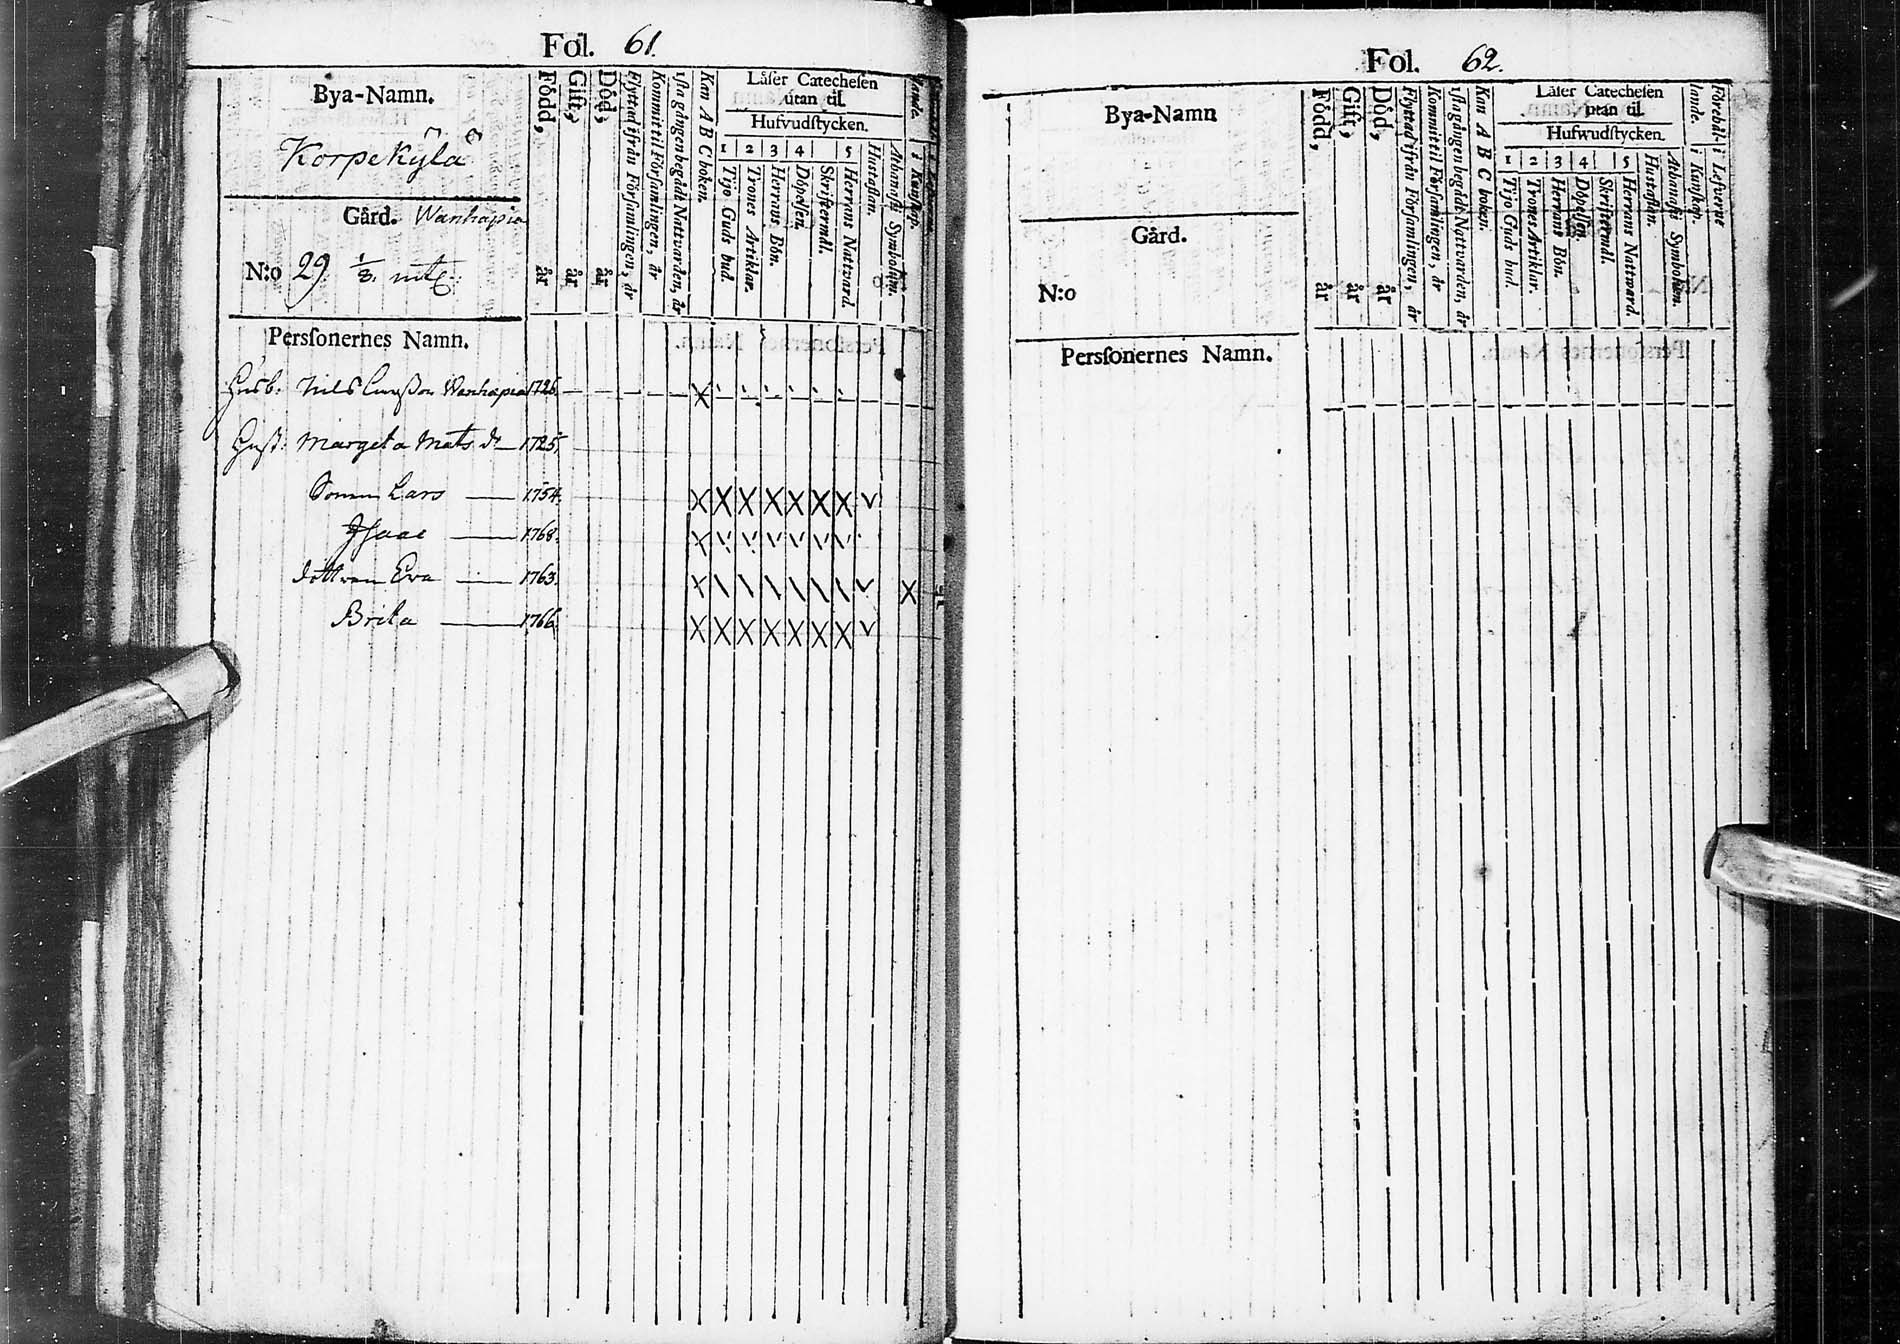 Fol. 61.
Bya-Namn.
Korpekylä
Gård. Wanhapia
N:o 29 1/8. mtl.
Persſonernes Namn.
Född, år
Gift, år
Död, år
Flyttad ifrån Församlingen, år
Kommit til Församlingen, år
1sta gången begådt Nattvarden, år
Kan A B C boken.
Låſer Catecheſen
utan til.
Hufvudſtycken.
1 2 3 4 5
Tijo Guds bud.
Trones Artiklar.
Herrans Bön.
Döpelſen.
Skriftermål.
Herrans Nattvard.
Huſtaflan.
Athanaſii Symbolum.
Husb. Nils Larsſon Wanhapia 1726.
Huſt. Margeta Mats dr 1725.
Sonen Lars 1754.
Iſaac 1768.
dottren Eva 1763.
Brita 1766.
Fol. 62.
Bya-Namn
Gård.
N:o
Persſonernes Namn.
Född, år
Gift, år
Död, år
Flyttad ifrån Församlingen, år
Kommit til Församlingen, år
1sta gången begådt Nattvarden, år
Kan A B C boken.
Låſer Catecheſen
utan til.
Hufwudſtycken.
1 2 3 4 5
Tijo Guds bud.
Trones Artiklar.
Herrans Bön.
Döpelſen.
Skriftermål.
Herrans Nattward.
Huſtaflan.
Athanaſii Symbolum.
Förehål-
lande.
i Kunſkap.
i Lefverne